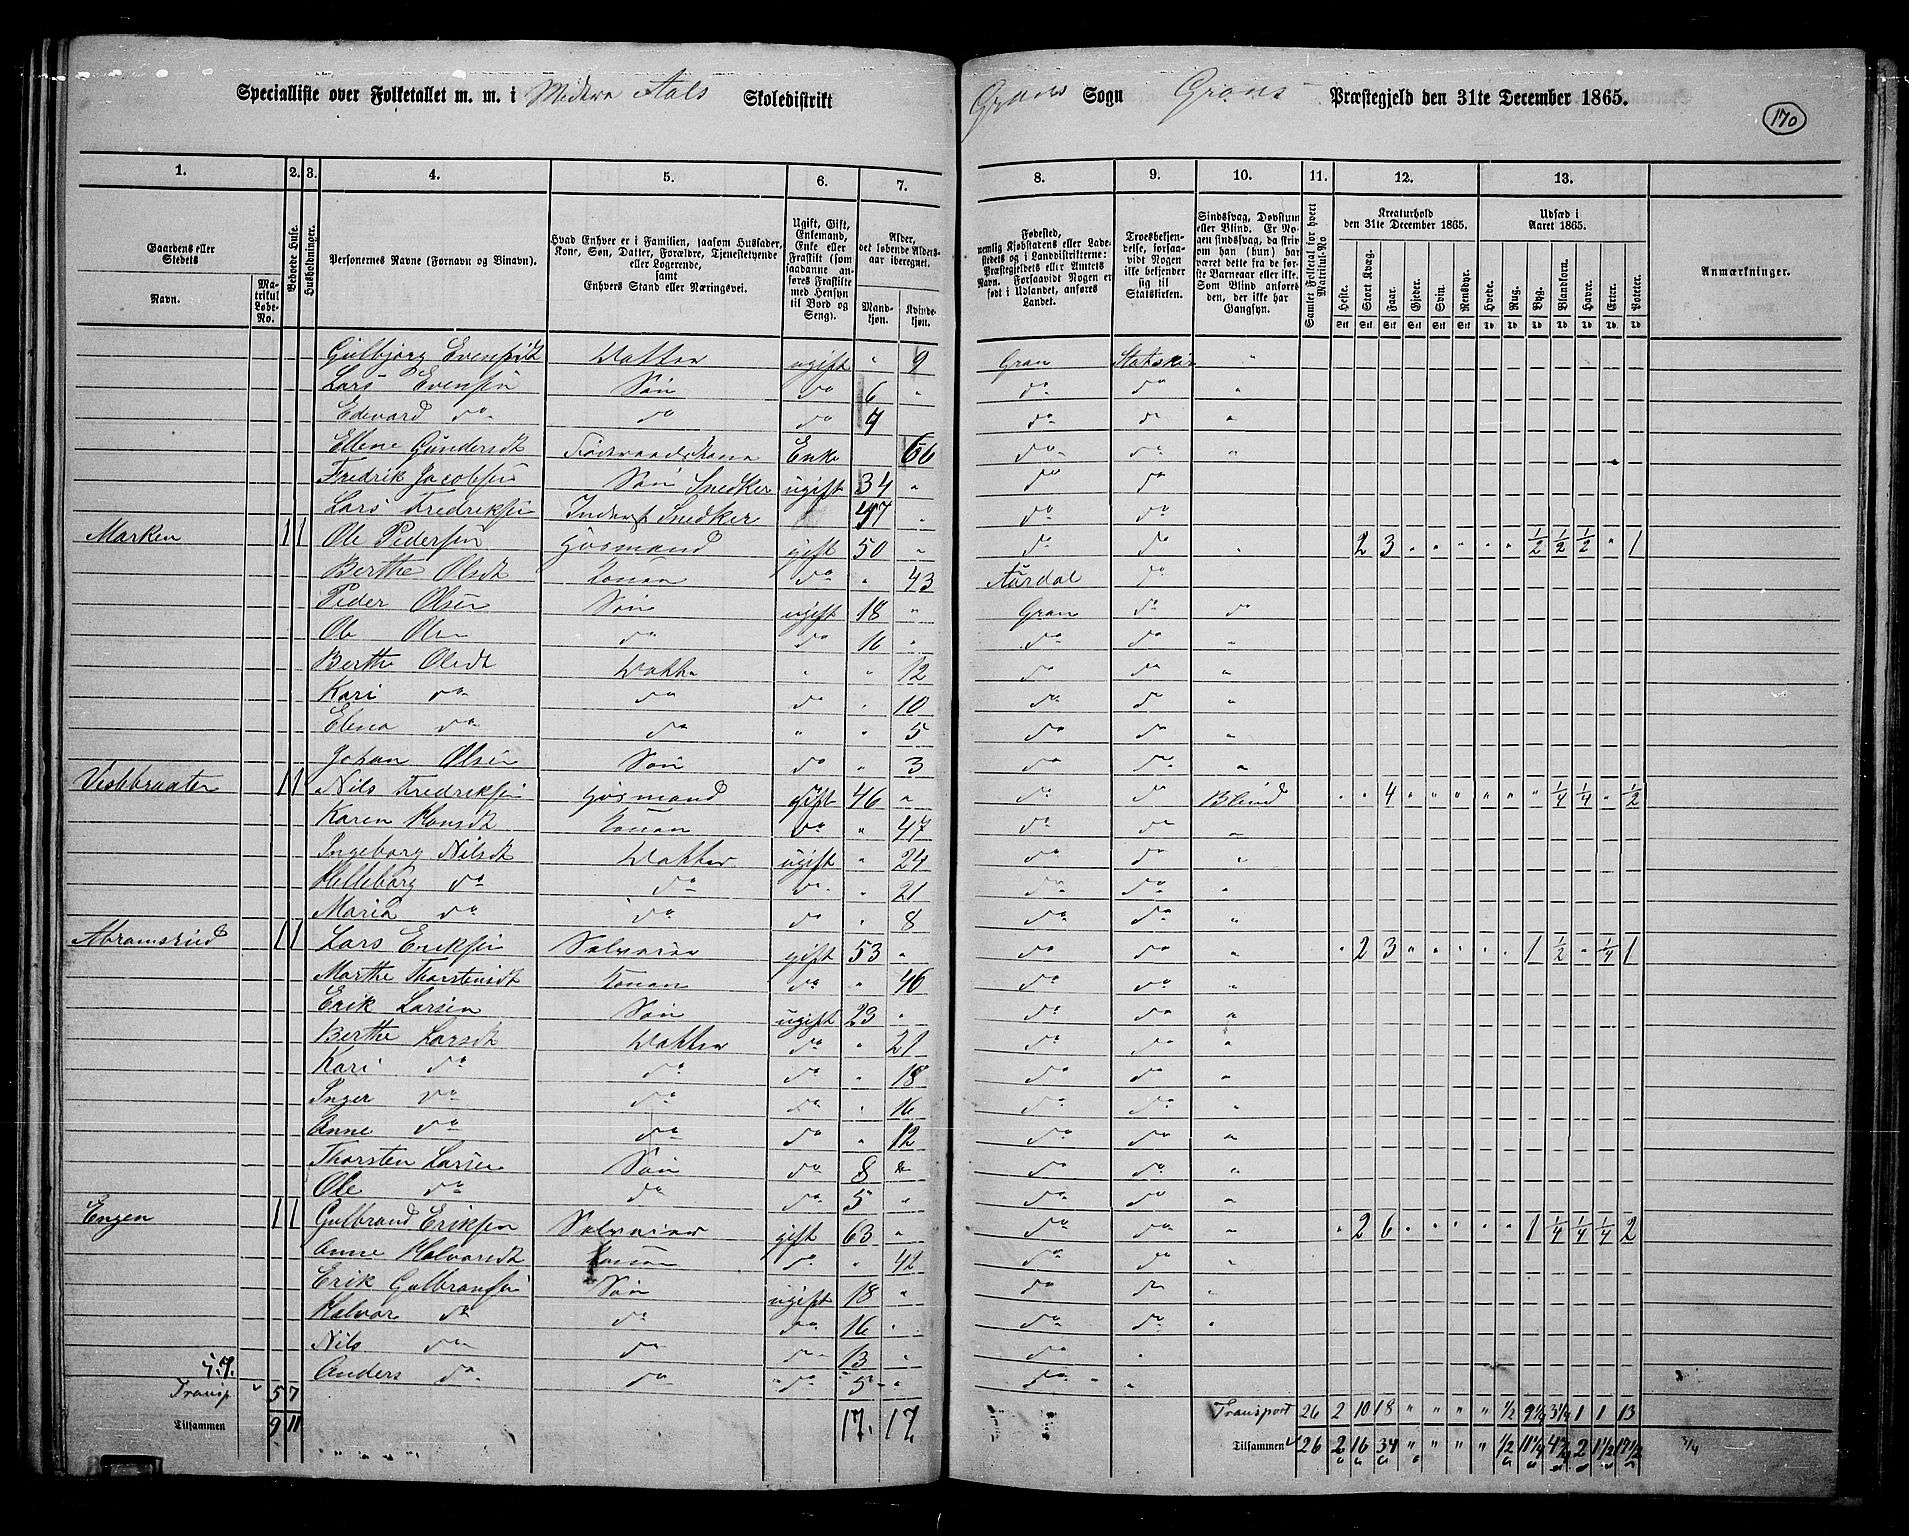 Specialliste over Folketallet m. m. i Midtre Aals Skoledistrikt Grans Sogn Grans Præstegjeld den 31te December 1865.
170
1. 2. 3. 4. 5. 6. 7. 8. 9. 10. 11. 12. 13.
Gaardens eller Stedets Navn.
Matrikul Løbe-No.
Beboede Huse.
Husholdninger.
Personernes Navne (Fornavn og Binavn).
Hvad Enhver er i Familien, saasom Husfader, Kone, Søn, Datter, Forældre, Tjenestetyende eller Logerende, samt Enhvers Stand eller Næringsvei.
Ugift, Gift, Enkemand, Enke eller Fraskilt (som saadanne anføres Fraskilte med Hensyn til Bord og Seng).
Alder, det løbende Alders-aar iberegnet.
Mand-kjøn. Kvinde-kjøn.
Fødested, nemlig Kjøbstadens eller Ladestedets og i Landdistrikterne: Præstegjeldets eller Amtets Navn. Forsaavidt Nogen er født i Udlandet, anføres Landet.
Troesbekjendelse, forsaavidt Nogen ikke bekjender sig til Statskirken.
Sindssvag, Døvstum eller Blind. Er Nogen sindssvag, da skrives om han (hun) har været dette fra de første Barneaar eller ikke. Som Blind anføres den, der ikke har Gangsyn.
Samlet Folketal for hvert Matrikul-No
Kreaturhold den 31te December 1865.
Heste. Stort Kvæg. Faar. Gjeder. Svin. Rensdyr.
Udsæd i Aaret 1865.
Hvede. Rug. Byg. Blandkorn. Havre. Erter. Poteter.
Anmærkninger.
Gulbjorg Evensdt Datter ugift " 9 Gran Statskir "
Lars Evensen Søn do 6 " do do "
Edevard do do do 7 do do "
Ellene Gundersdt Føderaadskone Enke 66 do do "
Fredrik Jacobsen Søn Snedker ugift 34 " do do
Lars Fredriksen Inderst Snedker 47 " do do
Marken 1 1 Ole Pedersen Huusmand gift 50 " do do " 2 3 " " " " " 1/2 1/2 1/2 " 1
Berthe Olsdt Konen do " 43 Aurdal do
Peder Olsen Søn ugift 18 " Gran do do
Ole Olsen do do 16 " do do "
Berthe Olsdt Datter " " 12 do do "
Kari do do do " 10 do do "
Elena do do " " 5 do do "
Johan Olsen Søn do " 3 do do "
1 1 Nils Fredriksen Huusmand gift 46 " do do Blind " " 4 " " " " " " 1/4 1/4 " 1/2
Karen Hansdt Konen do " 47 do do "
Ingeborg Nilsdt Datter ugift " 24 do do "
Helleborg do do do " 21 do do "
Maria do do do " 8 do do "
Abramsrud 1 1 Lars Eriksen Selveier gift 53 " do do " " 2 3 " " " " " 1 1/2 " 1/4 1
Marthe Thorstensdt Konen do " 46 do do "
Erik Larsen Søn ugift 23 " do do "
Berthe Larsdt Datter do " 21 do do "
Kari do do do " 18 do do "
Inger do do do " 16 do do "
Anne do do do " 12 do do "
Thorsten Larsen Søn do 8 " do do "
Ole do do do 5 " do do "
Engen 1 1 Gulbrand Eriksen Selveier gift 63 " do do " " 2 6 " " " " " 1 1/4 1/4 1/4 2
Anne Halvorsdt Konen do " 42 do do "
Erik Gulbransen Søn ugift 18 " do do "
Halvor do do do 16 " do do "
Nils do do do 13 " do "
Anders do do do 5 " do "
Transp 5 7 Transport 26 2 10 18 " " " " 1/2 9 1/4 3 1/4 1 1 13
Tilsammen 9 11 17 17 Tilsammen 26 2 16 34 " " " " 1/2 2 1 1/2 17 1/2